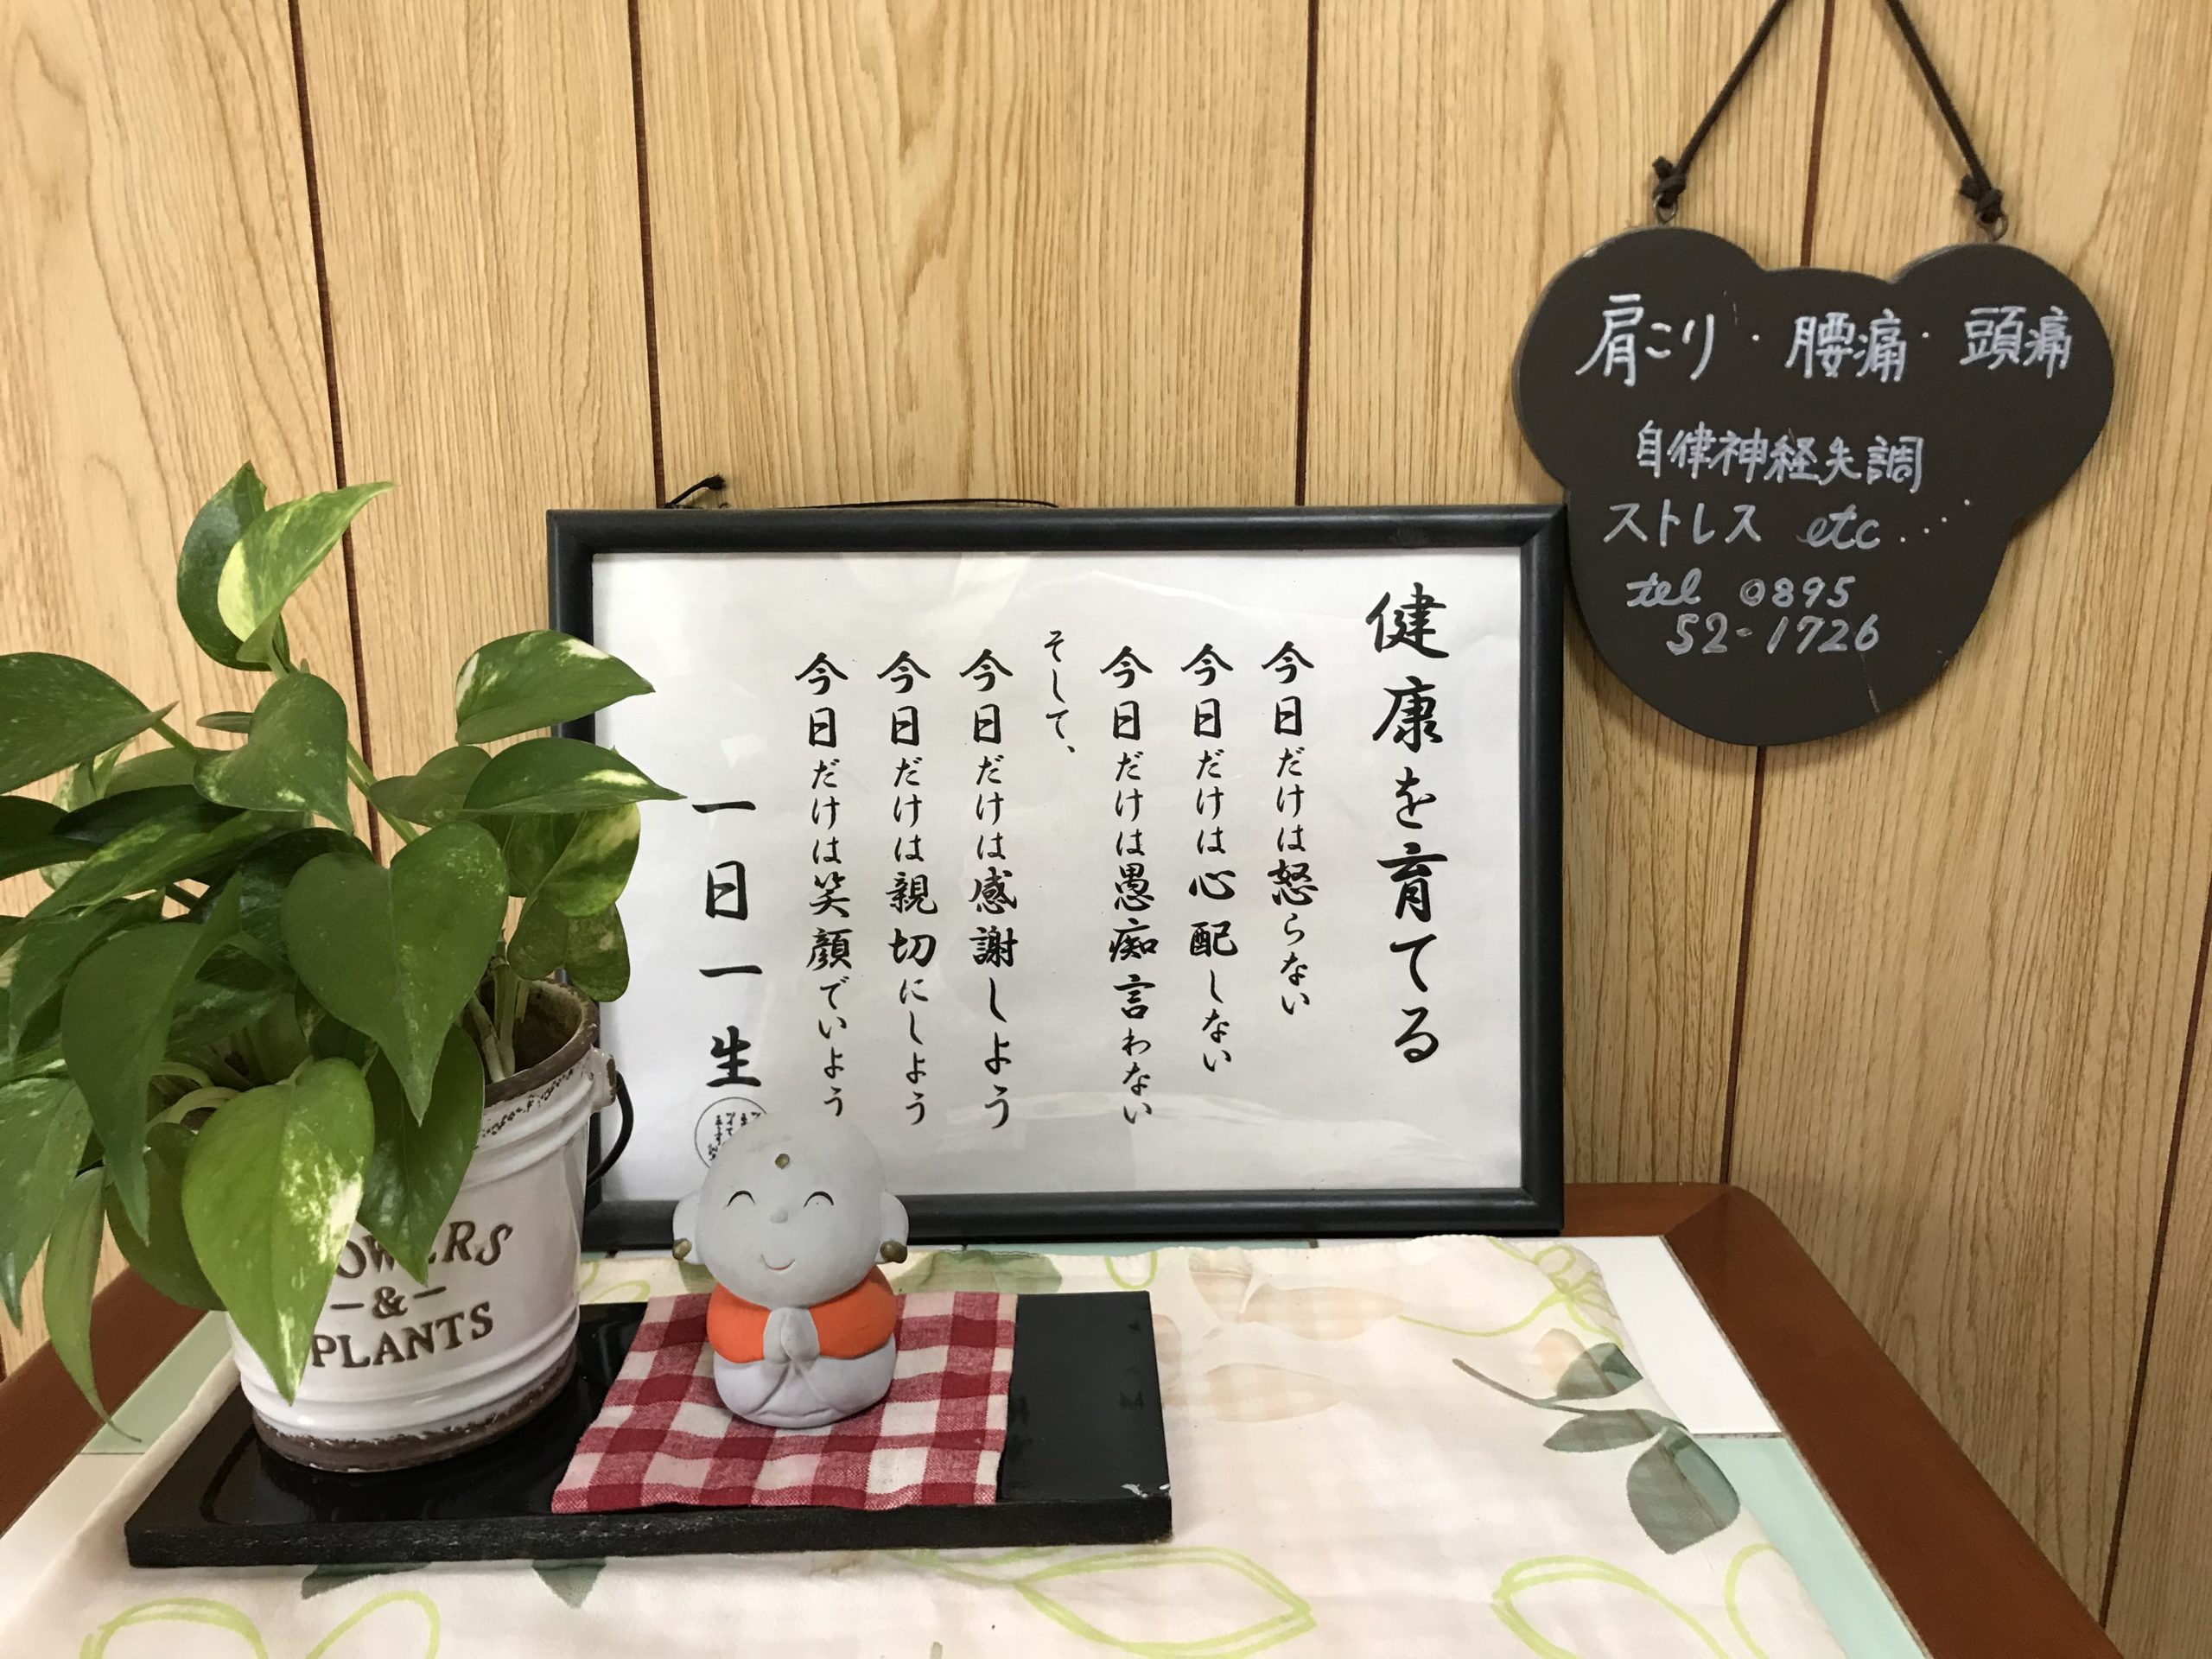 健康を育てる
今日だけは怒らない
今日だけは心配しない
今日だけは愚痴言わない
そして、
今日だけは感謝しよう
今日だけは親切にしよう
今日だけは笑顔でいよう
一日一生
肩こり・腰痛・頭痛
自律神経失調
ストレス etc....
tel 0895
52-1726
OWERS
-&-
PLANTS